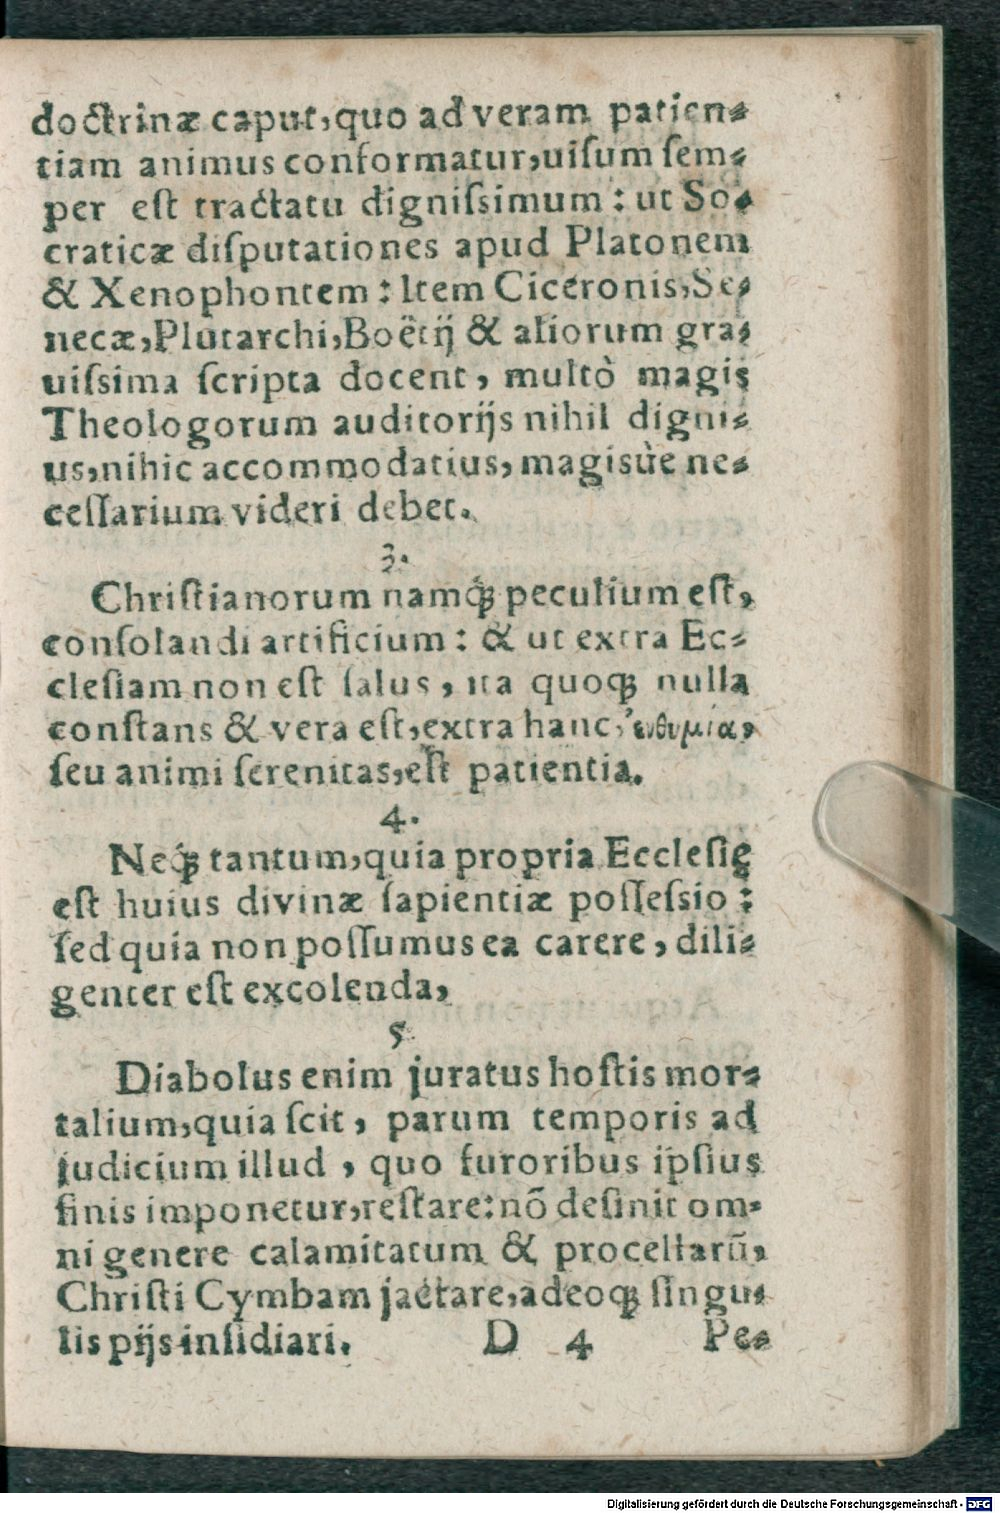 doctrinæ caput, quo ad veram patien⸗
tiam animus conformatur, uiſum ſem⸗
per eſt tractatu digniſsimum: ut So⸗
craticæ diſputationes apud Platonem
& Xenophontem: Item Ciceronis, Se⸗
necæ, Plutarchi, Boëtij & aliorum gra⸗
uiſsima ſcripta docent, multò magis
Theologorum auditorijs nihil digni⸗
us, nihic accommodatius, magisùe ne⸗
ceſſarium videri debet.
3.
Chriſtianorum namq́; peculium eſt,
conſolandi artificium: & ut extra Ec⸗
cleſiam non eſt ſalus, ita quoq; nulla
conſtans & vera eſt, extra hanc, ἐυθυμία,
ſeu animi ſerenitas, eſt patientia.
4.
Neq́; tantum, quia propria Eccleſię
eſt huius divinæ ſapientiæ poſſeſsio:
ſed quia non poſſumus ea carere, dili⸗
genter eſt excolenda,
5.
Diabolus enim juratus hoſtis mor⸗
talium, quia ſcit, parum temporis ad
judicium illud, quo furoribus ipſius
finis imponetur, reſtare: nõ deſinit om⸗
ni genere calamitatum & procellarũ,
Chriſti Cymbam jactare, adeoq; ſingu⸗
lis pijs inſidiari. D 4 Pe⸗
Digitalisierung gefördert durch die Deutsche Forschungsgemeinschaft - DFG